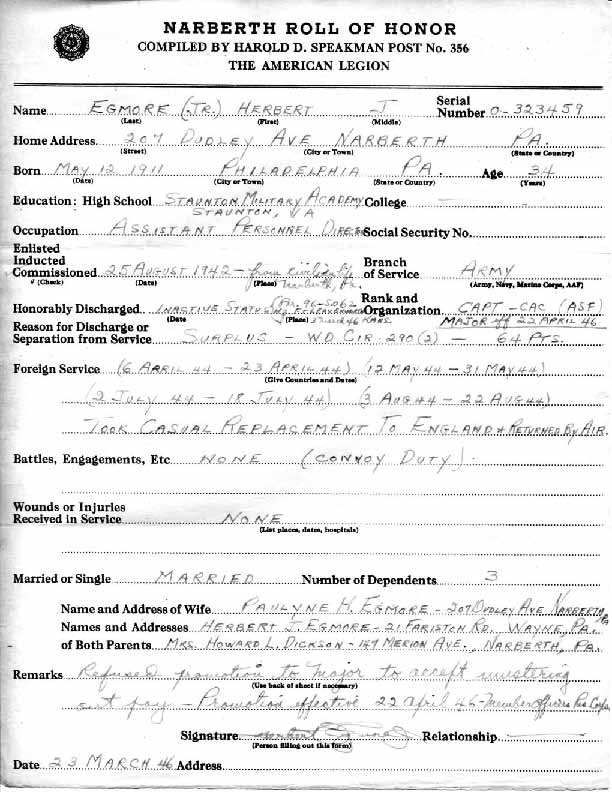 NARBERTH ROLL OF HONOR
COMPILED BY HAROLD D. SPEAKMAN POST No. 356
THE AMERICAN LEGION
Name EGMORE (JR.) HERBERT J Serial Number O-323459
(Last) (First) (Middle)
Home Address 207 DUDLEY AVE NARBERTH PA.
(Street) (City or Town) (State or Country)
Born MAY 12 1911 PHILADELPHIA PA. Age 34
(Date) (City or Town) (State or Country) (Years)
Education: High School STAUNTON MILITARY ACADEMY College —
STAUNTON, VA
Occupation ASSISTANT PERSONNEL Social Security No.
Enlisted
Inducted
Commissioned 25 AUGUST 1942 - from civilian life Branch of Service ARMY
√ (Check) (Date) (Place) Narberth, Pa. (Army, Navy, Marine Corps, AAF)
Honorably Discharged INACTIVE STATUS Rank and Organization CAPT - CAC (ASF)
(Date (Place) MAJOR eff 22 APRIL 46
Reason for Discharge or
Separation from Service SURPLUS - WD CIR. 290 (2) - 64 PTS.
Foreign Service (6 APRIL 44 - 23 APRIL 44) (12 MAY 44 - 31 MAY 44)
(Give Countries and Dates)
(2 JULY 44 - 18 JULY 44) (3 AUG 44 - 22 AUG 44)
TOOK CASUAL REPLACEMENT TO ENGLAND & RETURNED BY AIR.
Battles, Engagements, Etc. NONE (CONVOY DUTY)
Wounds or Injuries
Received in Service NONE
(List places, dates, hospitals)
Married or Single MARRIED Number of Dependents 3
Name and Address of Wife PAULYNE H. EGMORE - 207 DUDLEY AVE NARBERTH Pa
Names and Addresses HERBERT J. EGMORE - 21 FARISTON RD, WAYNE, PA.
of Both Parents MRS. HOWARD L. DICKSON - MERION AVE., NARBERTH, PA.
Remarks Refused promotion to Major to accept mustering
(Use back of sheet if necessary)
out pay - Promotion effective 22 April 46 - Member Officers Res Corps.
Signature Relationship
(Person filling out this form)
Date 23 MARCH 46 Address